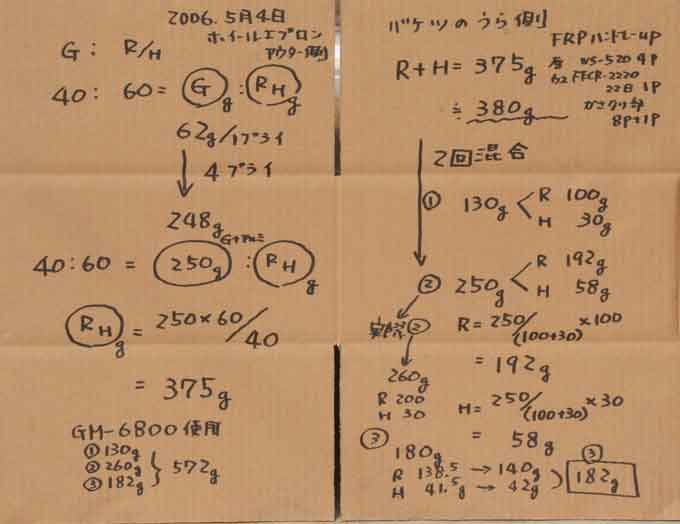 2006.5月4日
ホイールエプロン
アウター側
G: R/H
40: 60= G g : RH g
62g/1プライ
4プライ
248g
G+アルミ
40:60 = 250g : RH g
RH g = 250×60/40
= 375g
GM-6800使用
①130g
②260g
③182g
572g
バケツのうら側
FRPハンドレーup
R+H= 375g
WS-520 4P
22日 1P
≒ 380g
8P+1P
2回混合
① 130g
R 100g
H 30g
② 250g
R 192g
H 58g
実際②
R= 250/(100+30) ×100
= 192g
260g
R 200
H 30
H= 250/(100+30) ×30
= 58g
③ 180g
R 138.5 → 140g
H 41.5g → 42g
③
182g